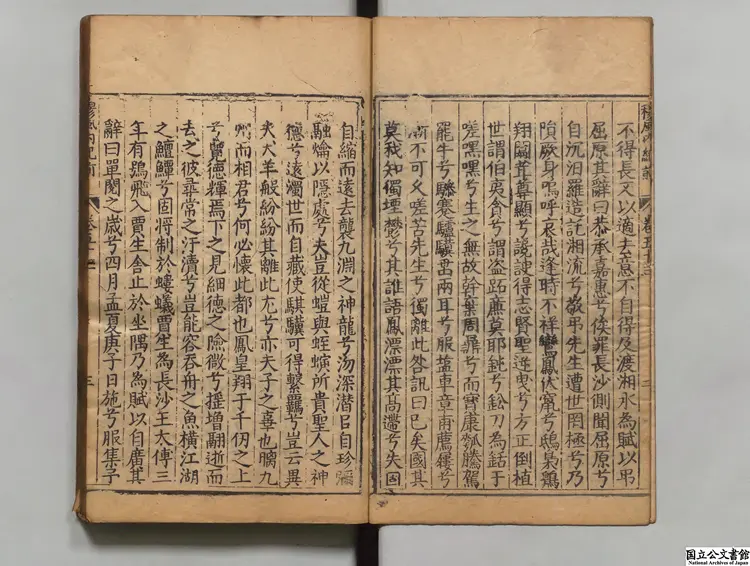 不得長又以適去意不自得及渡湘水為賦以弔
屈原其辭曰恭承嘉惠兮俟罪長沙側聞屈原兮
自沉汨羅造託湘流兮敬弔先生遭世罔極兮乃
隕厥身嗚呼哀哉逢時不祥鸞鳳伏竄兮鴟梟翱
翔闒茸尊顯兮讒諛得志賢聖逆曳兮方正倒植
世謂伯夷貪兮謂盜跖廉莫耶鈍兮鉛刀為銛于
嗟嘿嘿兮生之無故幹棄周鼎兮而寶康瓠騰駕
罷牛兮驂蹇驢驥垂兩耳兮服塩車章甫薦屨兮
漸不可久嗟苦先生兮獨離此咎訊曰已矣國其
莫我知獨堙鬱兮其誰語鳳漂漂其高遰兮夫固
自縮而遠去襲九淵之神龍兮沕深潛㠯自珍彌
融爚以隱處兮夫豈從螘與蛭螾所貴聖人之神
德兮遠濁世而自藏使騏驥可得繫羈兮豈云異
夫犬羊般紛紛其離此尤兮亦夫子之辜也瞝九
州而相君兮何必懷此都也鳳皇翔于千仞之上
兮覽德輝焉下之見細德之險微兮搖增翮逝而
去之彼尋常之汙瀆兮豈能容吞舟之魚橫江湖
之鱣鱏兮固將制於螻蟻賈生為長沙王太傅三
年有鴞飛入賈生舍止於坐隅乃為賦以自廣其
辭曰單閼之歲兮四月孟夏庚子日施兮服集予
三
国立公文書館
National Archives of Japan